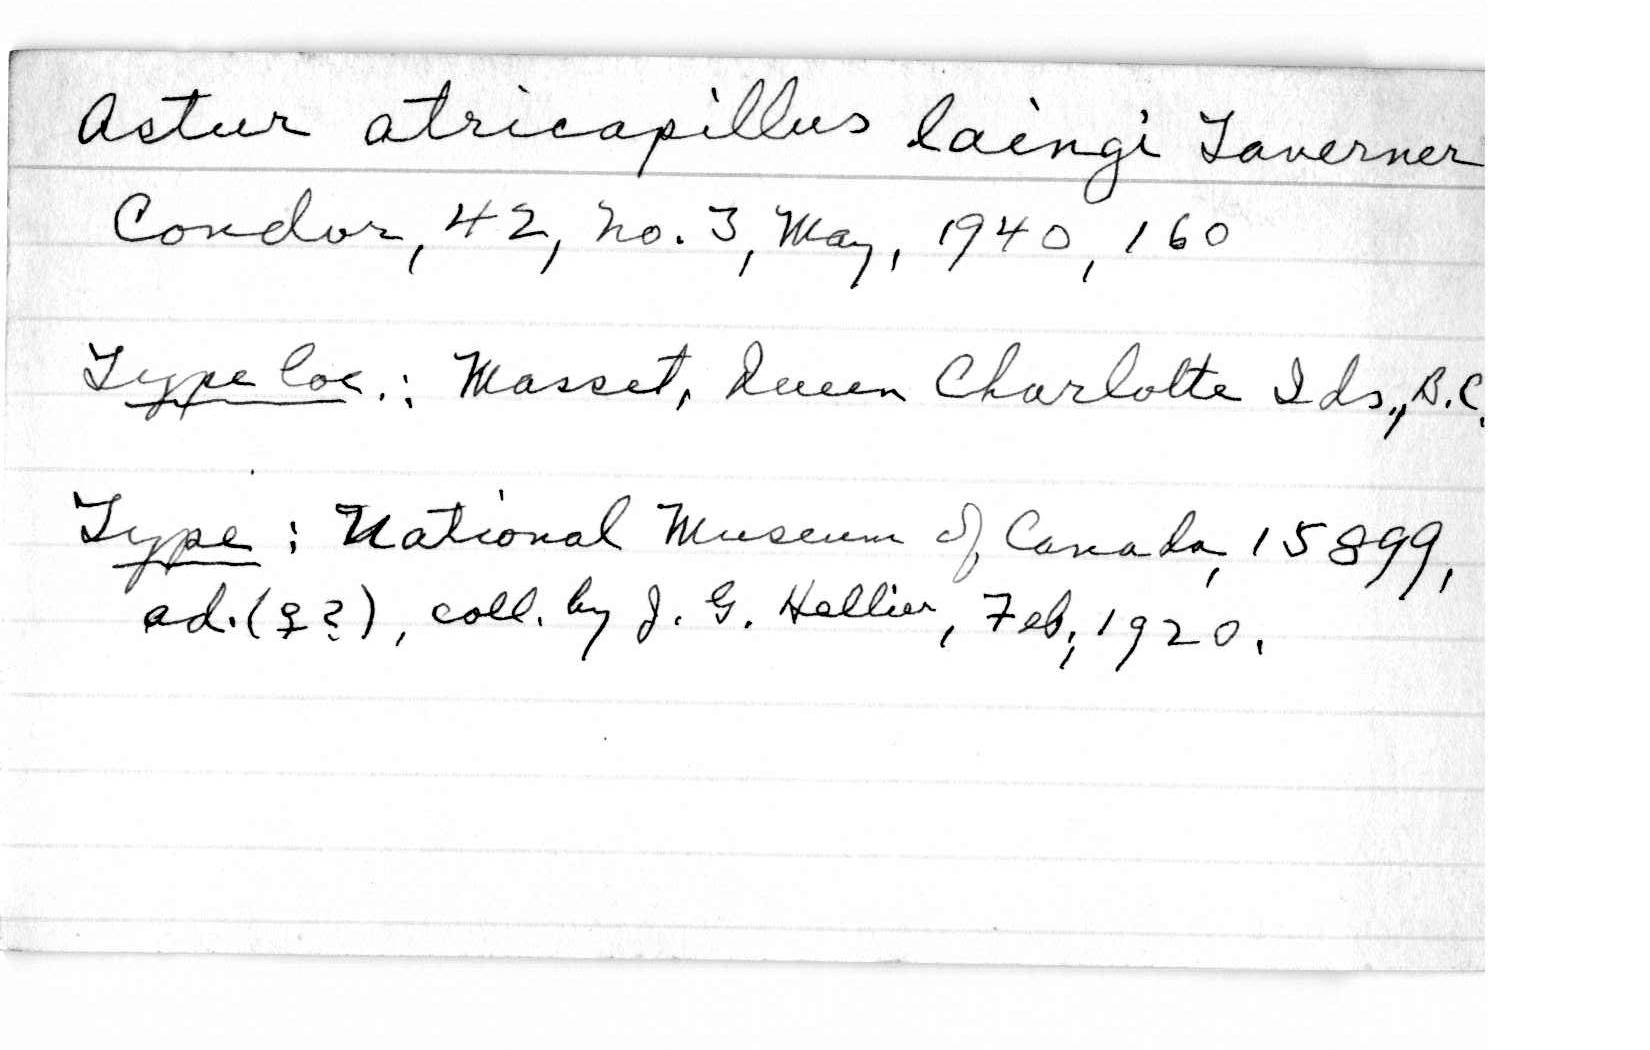 Astur atricapillus laingi Taverner
Condor, 42, no. 3, May, 1940, 160
Type loc.: Masset, Queen Charlotte Ids., B.C.
Type: National Museum of Canada, 15899,
ad. (♀?), coll. by J. G. Hellier, Feb., 1920.